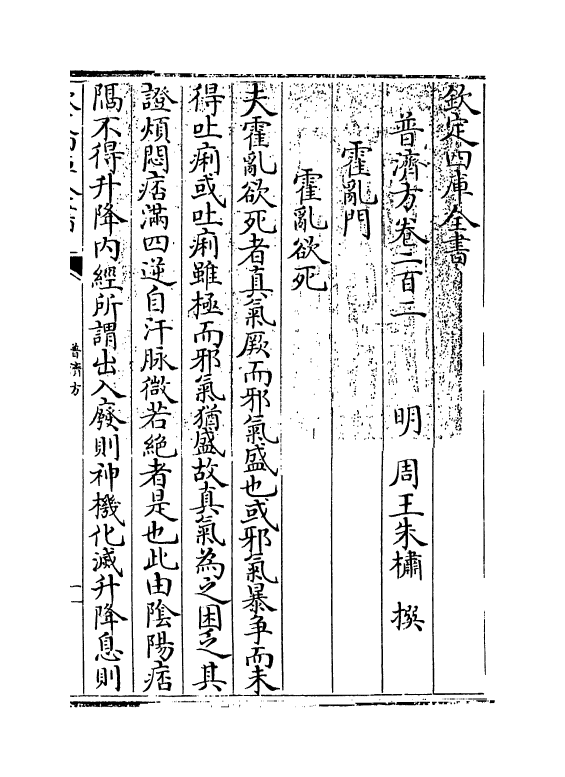 欽定四庫全書
普濟方卷二百二　明　周王朱橚　撰
霍亂門
霍亂欲死
夫霍亂欲死者真氣厥而邪氣盛也或邪氣暴争而未
得吐痢或吐痢雖極而邪氣猶盛故真氣為之困乏其
證煩悶痞滿四逆自汗脉微若絶者是也此由隂陽痞
隔不得升降内經所謂出入廢則神機化滅升降息則
普濟方
一